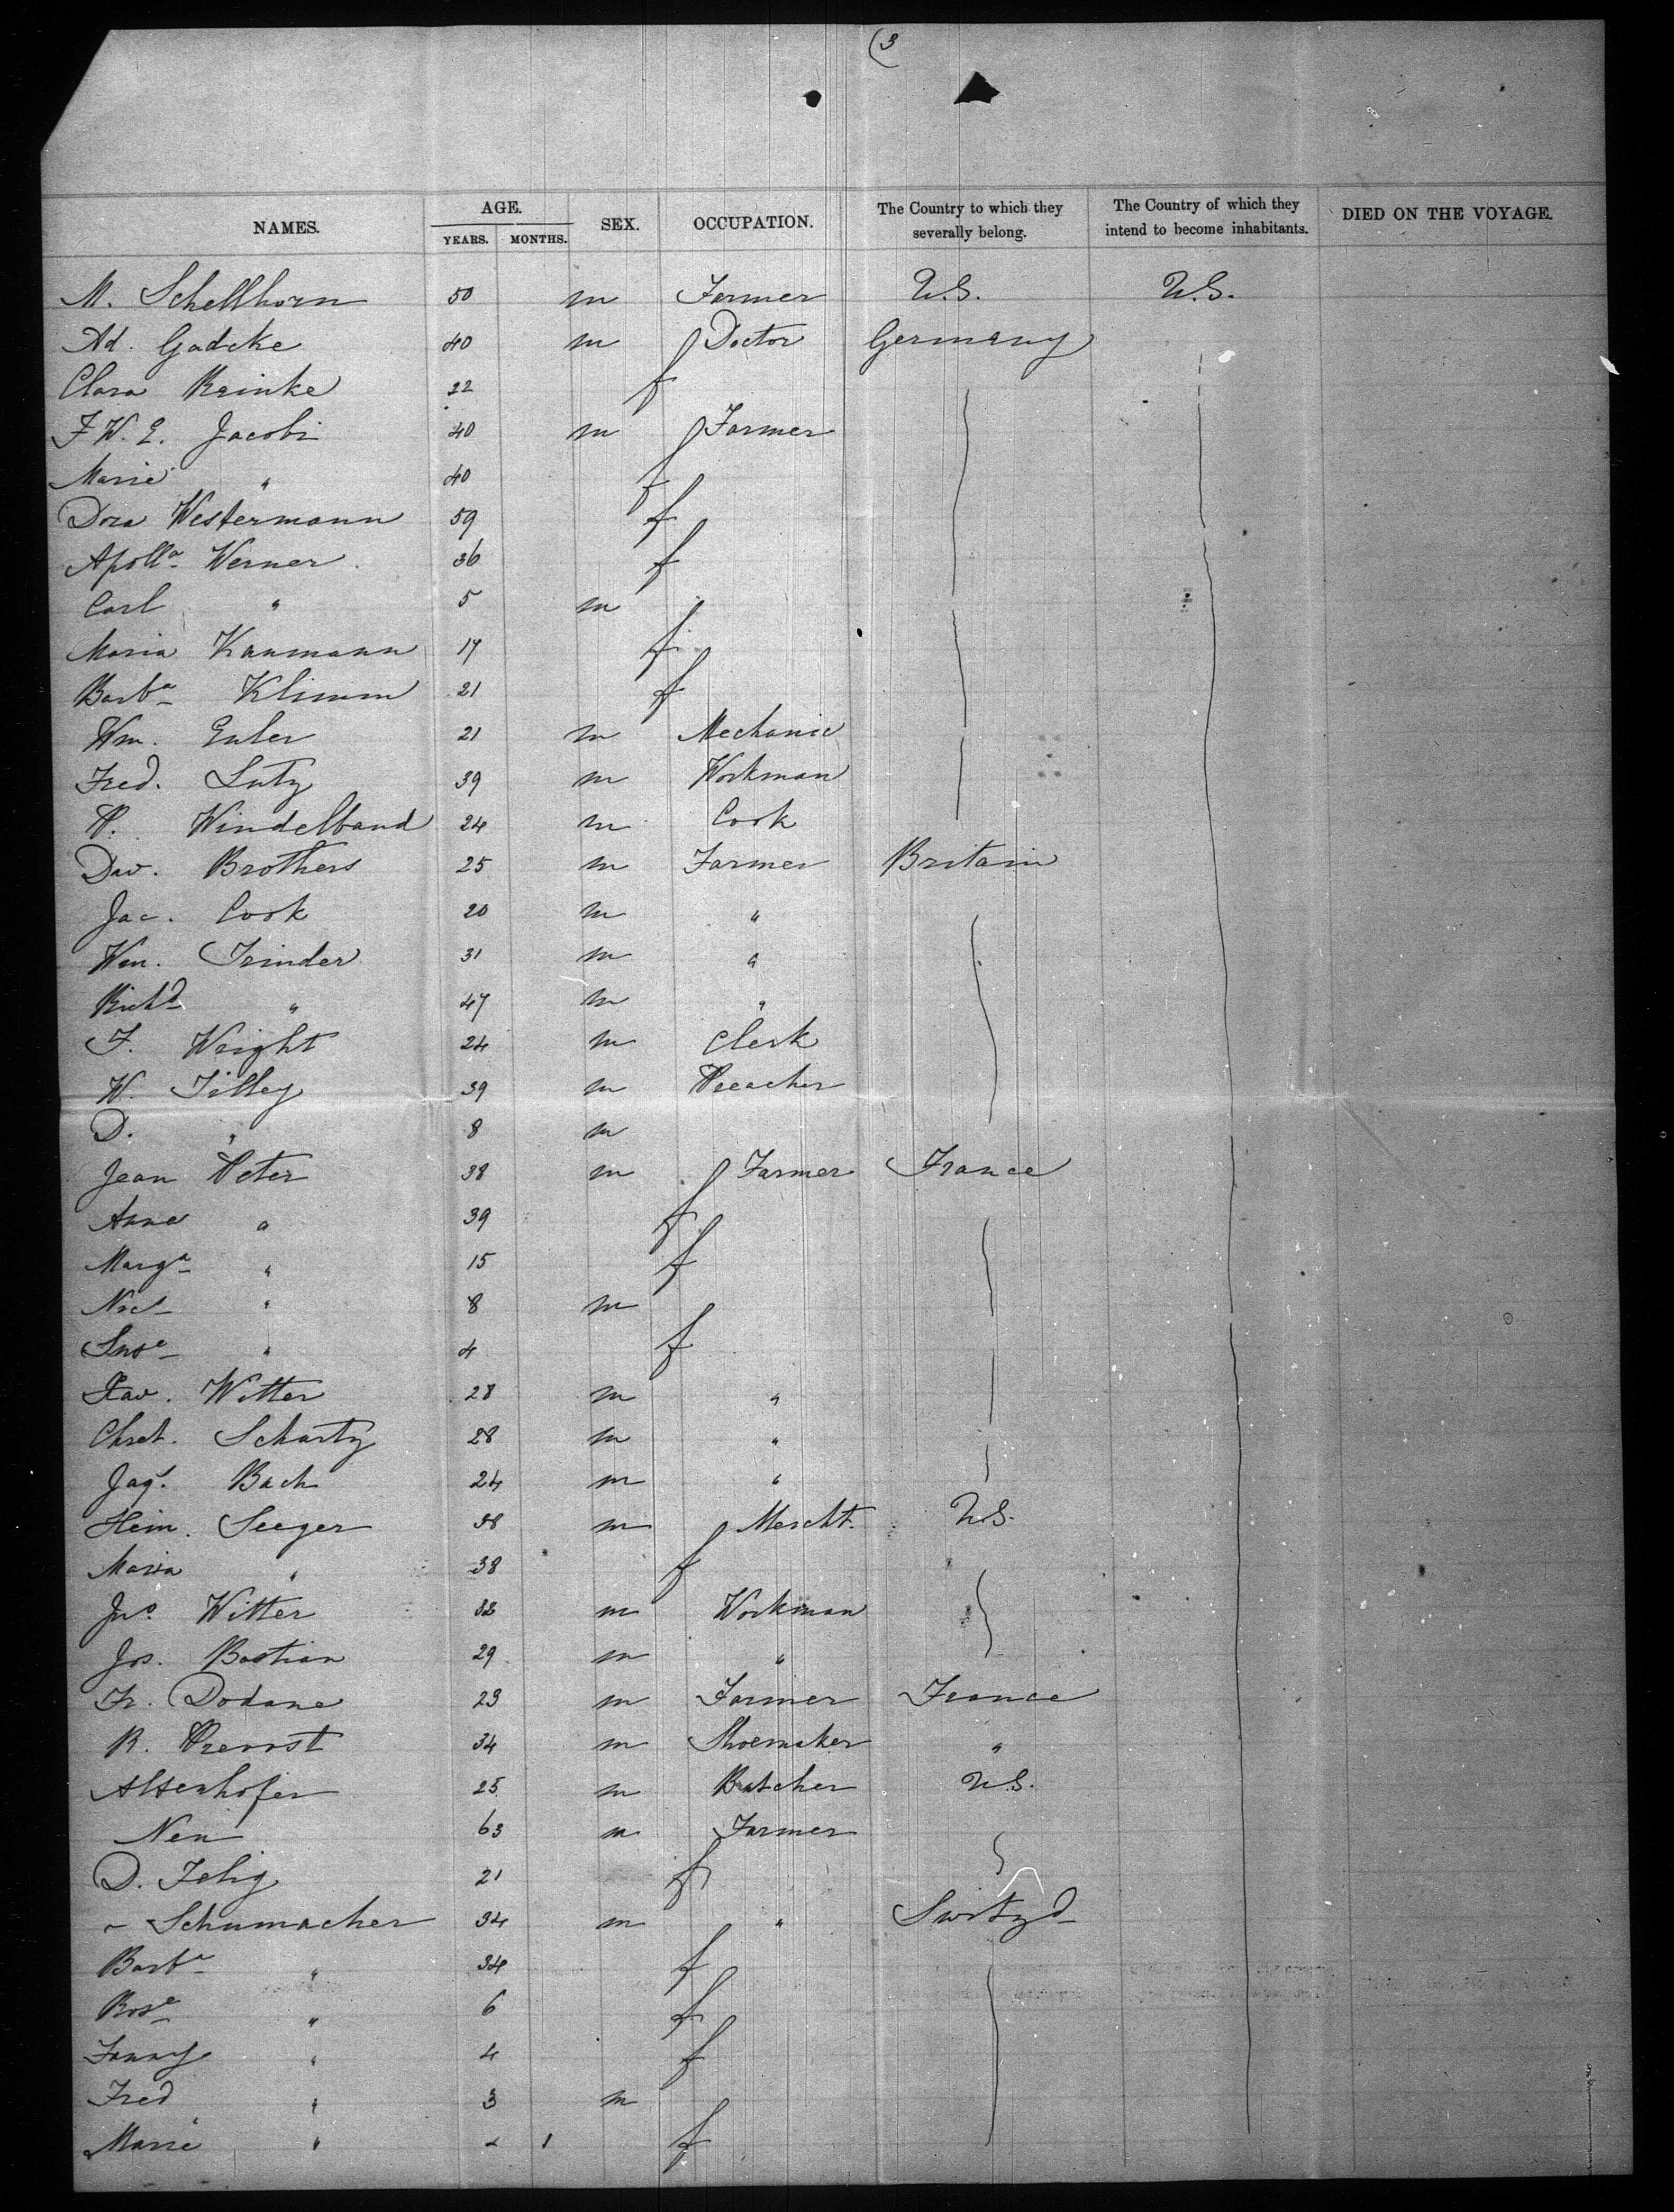 (3
NAMES. AGE. YEARS. MONTHS. SEX. OCCUPATION. The Country to which they severally belong. The Country of which they intend to become inhabitants. DIED ON THE VOYAGE.
M. Schellhorn 50 m Farmer U.S. U.S.
Ad. Gadcke 40 m Doctor Germany
Clara Reinke 22 f
F. W. E. Jacobi 40 m Farmer
Marie " 40 f
Dora Westermann 59 f
Apolla Werner 36 f
Carl " 5 m
Maria Kaumann 17 f
Barba Klimm 21 f
Wm. Euler 21 m Mechanic
Fred. Lutz 39 m Workman
P. Windelband 24 m Cook
Dav. Brothers 25 m Farmer Britain
Jac. Cook 20 m "
Wm. Trinder 31 m "
Richd " 47 m "
F. Wright 24 m Clerk
W. Tilley 39 m Preacher
D. " 8 m
Jean Peter 38 m Farmer France
Anna " 39 f
Marga " 15 f
Nic " 8 m
" 4 f
Xav. Witter 28 m "
Chret. Schartz 28 m "
Jaqs. Bach 24 m "
Hein. Seeger 38 m Mercht. U.S.
Maria " 38 f
Jno. Witter 32 m Workman
Jos. Bastian 29 m "
Fr. Dodane 23 m Farmer France
R. Prevost 34 m Shoemaker "
Altenhofer 25 m Butcher U.S.
Neu 63 m Farmer
D. 21 f
- Schumacher 34 m " Switzd
Barba " 34 f
Rosa " 6 f
Fanny " 4 f
Fred " 3 m
Marie " - 1 f